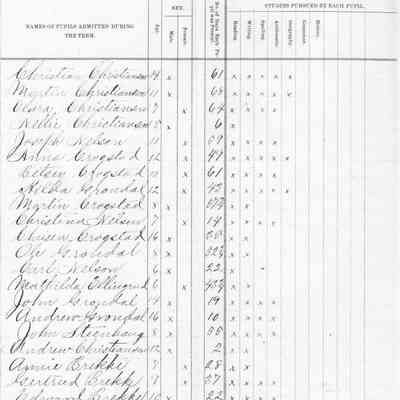 NAMES OF PUPILS ADMITTED DURING THE TERM. Age. SEX. Male. Female. No. of Days Each Pupil was Present. STUDIES PURSUED BY EACH PUPIL. Reading. Writing. Spelling. Arithmetic. Geography. Grammar. History.
Christian Christianson 14 x 61 x x x x x
Martin Christianson 11 x 68 x x x x x
Clara Christianson 7 x 64 x x x x
Nellie Christianson 5 x 6 x
Joseph Nelson 11 x 59 x x x x
Anna Crogstad 12 x 49 x x x x x
Betsey Crogstad 11 x 61 x x x x
Hilda Grondal 12 x 42 x x x x x
Martin Crogstad 8 x x x
Christina Nelson 7 x 14 x x x x
Crogstad 16 x x x
Ole Grondal 8 x x x
Carl Nelson 6 x 22 x
Mathilda Ellingrud 6 x x x
John Grondal 14 x 19 x x x x
Andrew Grondal 16 x 10 x x x x
John Steenhaug 8 x 35 x x x x
Andrew Christianson 12 x 2 x x
Annie Brekke 5 x 28 x x
Gertried Brekke 8 x 37 x x x x
Edward Brekke 10 x 22 x x x x